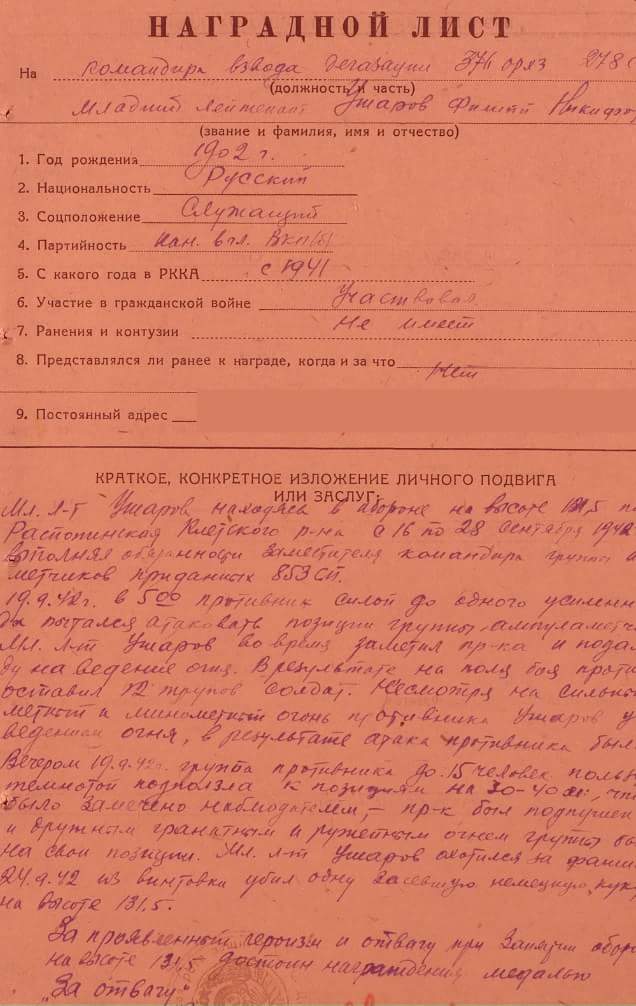 НАГРАДНОЙ ЛИСТ
На командира взвода дегазации 371 орхз 278 с
(должность и часть)
Младший лейтенант Ушаров Филипп Никифор
(звание и фамилия, имя и отчество)
1. Год рождения 1902 г.
2. Национальность Русский
3. Соцположение Служащий
4. Партийность Кан. в чл. ВКП(б)
5. С какого года в РККА с 1941
6. Участие в гражданской войне Участвовал
7. Ранения и контузии Не имеет
8. Представлялся ли ранее к награде, когда и за что Нет
9. Постоянный адрес
КРАТКОЕ, КОНКРЕТНОЕ ИЗЛОЖЕНИЕ ЛИЧНОГО ПОДВИГА
ИЛИ ЗАСЛУГ:
Мл. л-т Ушаров находясь в обороне на высоте 131,5
Распопинская Клетского р-на с 16 по 28 сентября 1942
выполняя обязанности заместителя командира группы а
метчиков приданных 853 СП.
19.9.42 г. в 5 00 противник силой до одного усиленн
пытался атаковать позиции группы ампуламетч
Мл. л-т Ушаров во время заметил пр-ка и подал
ду на ведение огня. В результате на поля боя проти
оставил 12 трупов солдат. Несмотря на сильный
метный и минометный огонь противника Ушаров у
ведением огня, в результате атака противника был
Вечером 19.9.42 г. группа противника до 15 человек польз
темнотой подползла к позициям на 30-40 м, чт
было замечено наблюдателем, - пр-к был подпущен
и дружным гранатным и ружейным огнем группы б
на свои позиции. Мл. л-т Ушаров охотился за фаши
24.9.42 из винтовки убил одну засевшую немецкую кук
на высоте 131,5.
За проявленный героизм и отвагу при занятии оборо
на высоте 131,5 достоин награждения медалью
"За отвагу"